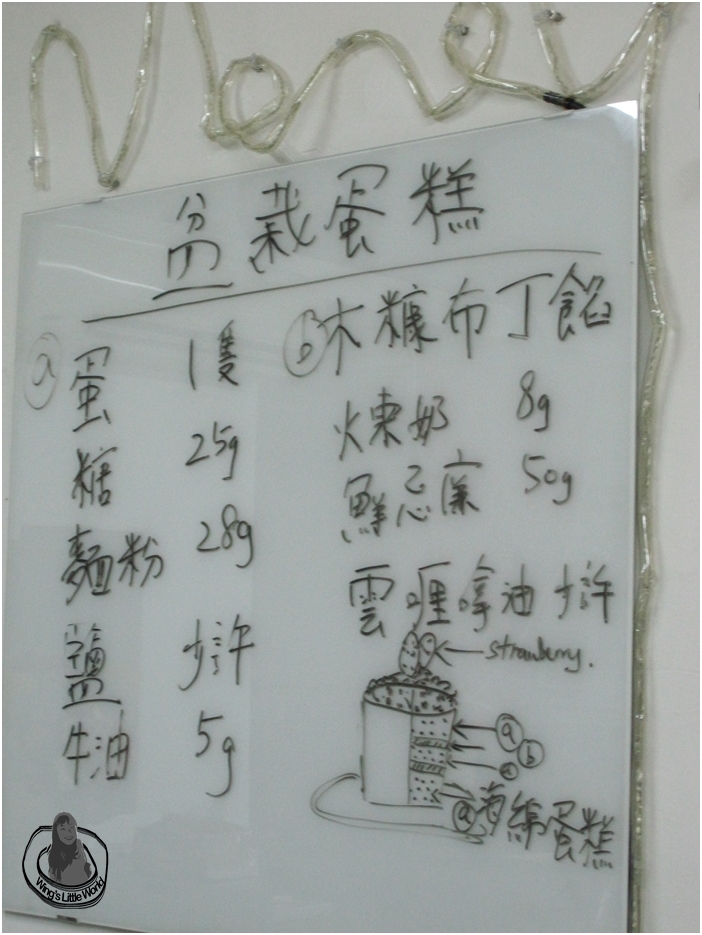 Money
盆栽蛋糕
ⓐ 蛋 1隻
糖 25g
麵粉 28g
鹽 少許
牛油 5g
ⓑ 木糠布丁餡
煉奶 8g
鮮忌廉 50g
雲喱嗱油 少許
strawberry.
ⓐ
ⓑ
ⓐ
ⓐ 海綿蛋糕
Wing's Little World